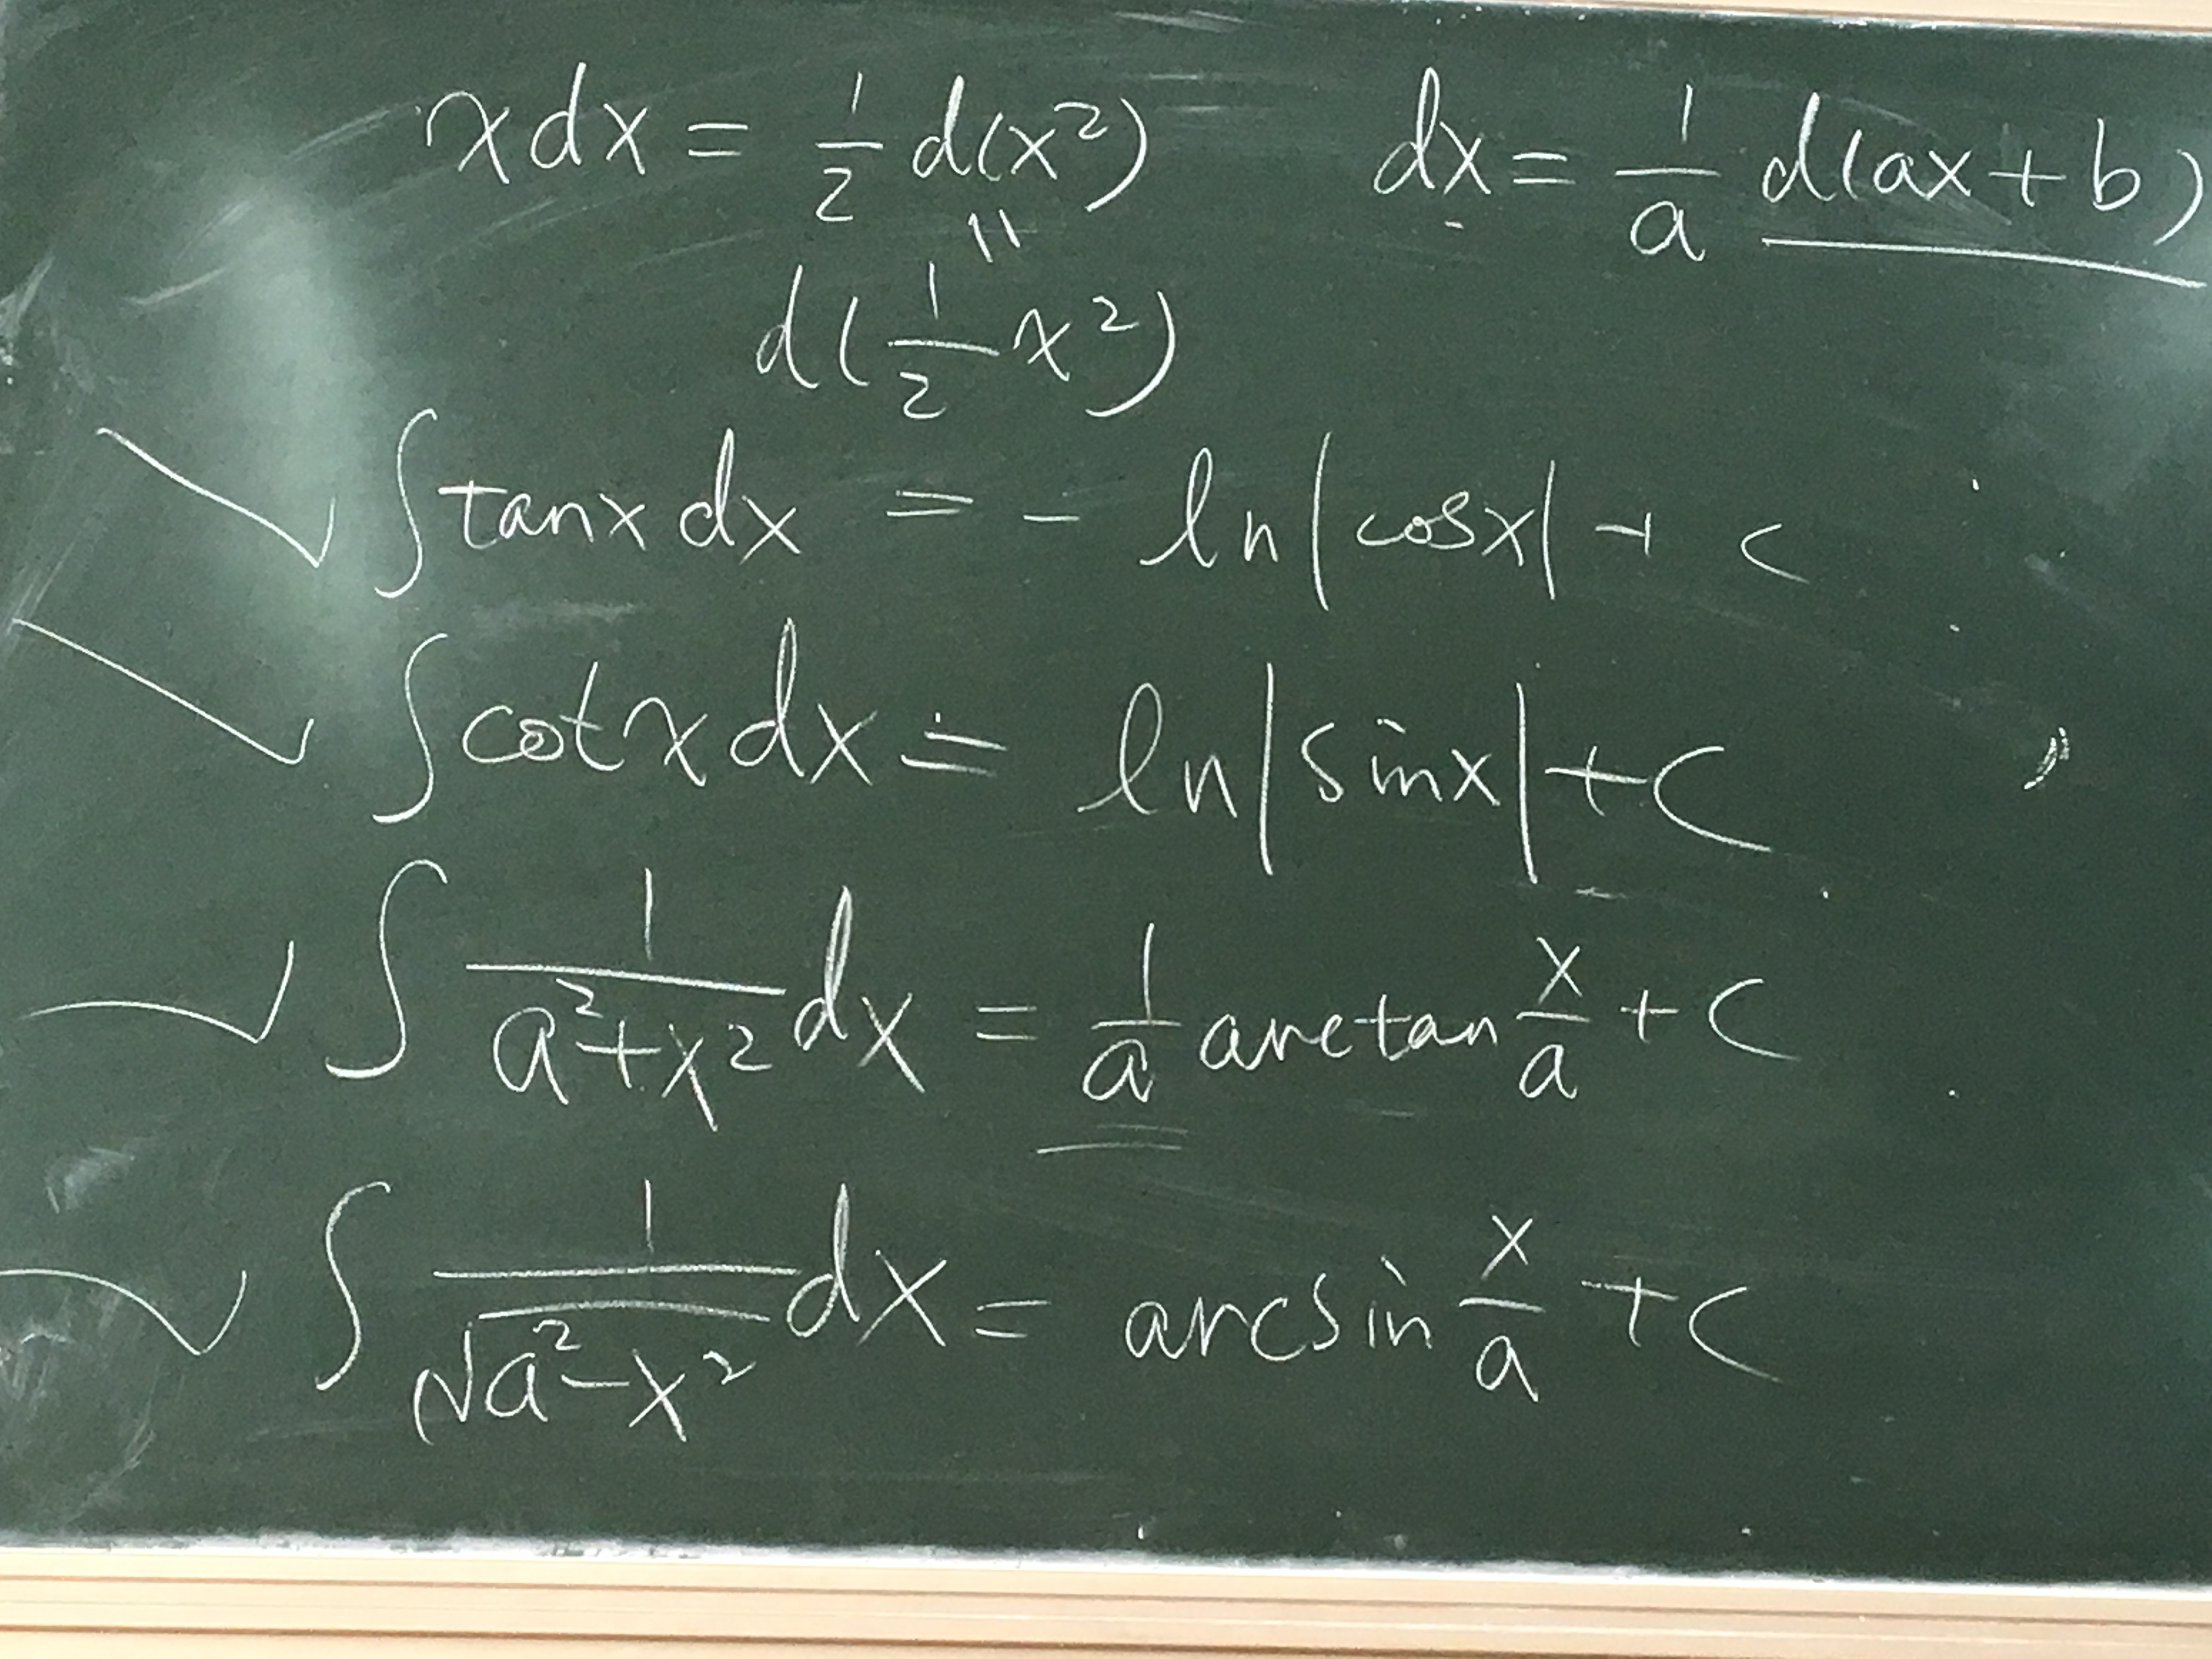 xdx = 1/2 d(x²)    dx = 1/a d(ax+b)
||
d(1/2 x²)
∫tanx dx = - ln|cosx| + c
∫cotx dx = ln|sinx| + C
∫ 1/(a²+x²) dx = 1/a arctan x/a + C
∫ 1/√(a²-x²) dx = arcsin x/a + C